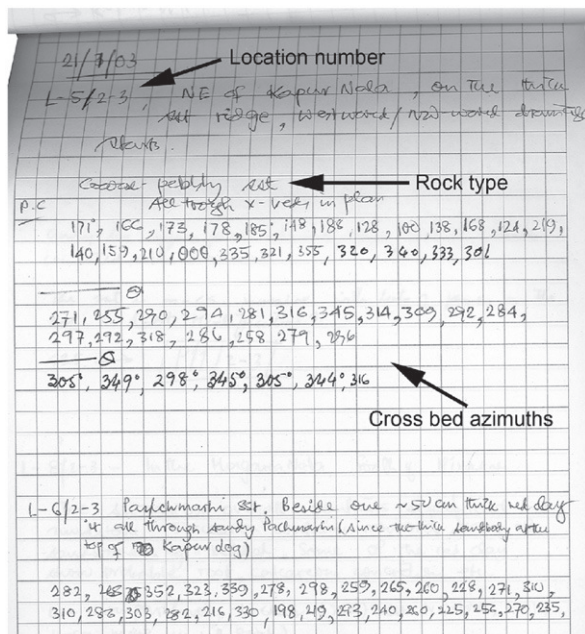 21/7/03
Location number
L-5/2-3, NE of Kapur Nala, on the thick
sst ridge, westward/NW-ward
starts.
Coarse-pebbly sst
Rock type
P.C
All trough x-beds, in plan
171°, 166, 173, 178, 185°, 148, 188, 128, 100, 138, 168, 124, 219,
140, 159, 210, 000, 335, 321, 355, 320, 340, 333, 301
271, 255, 290, 294, 281, 316, 345, 314, 309, 292, 284,
297, 292, 318, 286, 258 279, 296
305°, 349°, 298°, 345°, 305°, 344°, 316
Cross bed azimuths
L-6/2-3 Pachmarhi sst. Beside one ~50cm thick red clay
it all through sandy Pachmarhi (since the thick sandbody at the
top of Kapur deg)
282, 352, 323, 339, 278, 298, 259, 265, 260, 228, 271, 310,
310, 283, 303, 282, 216, 330, 198, 219, 293, 240, 260, 225, 256, 270, 235,